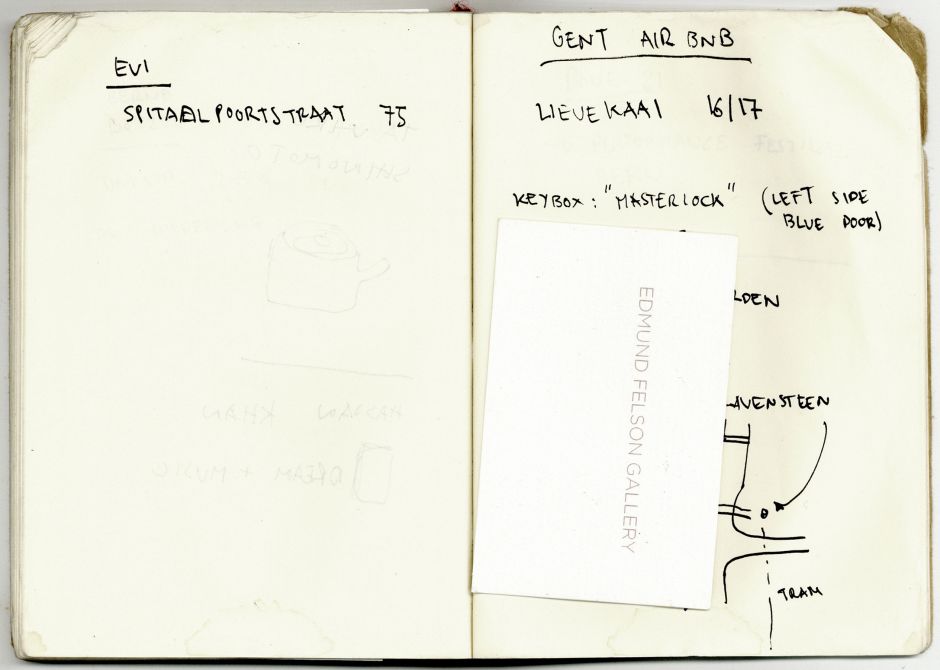 EVI
SPITAELPOORTSTRAAT 75
GENT AIRBNB
LIEVEKAAI 16/17
KEYBOX: "MASTERLOCK" (LEFT SIDE
BLUE DOOR)
LDEN
EDMUND FELSON GALLERY
AVENSTEEN
TRAM